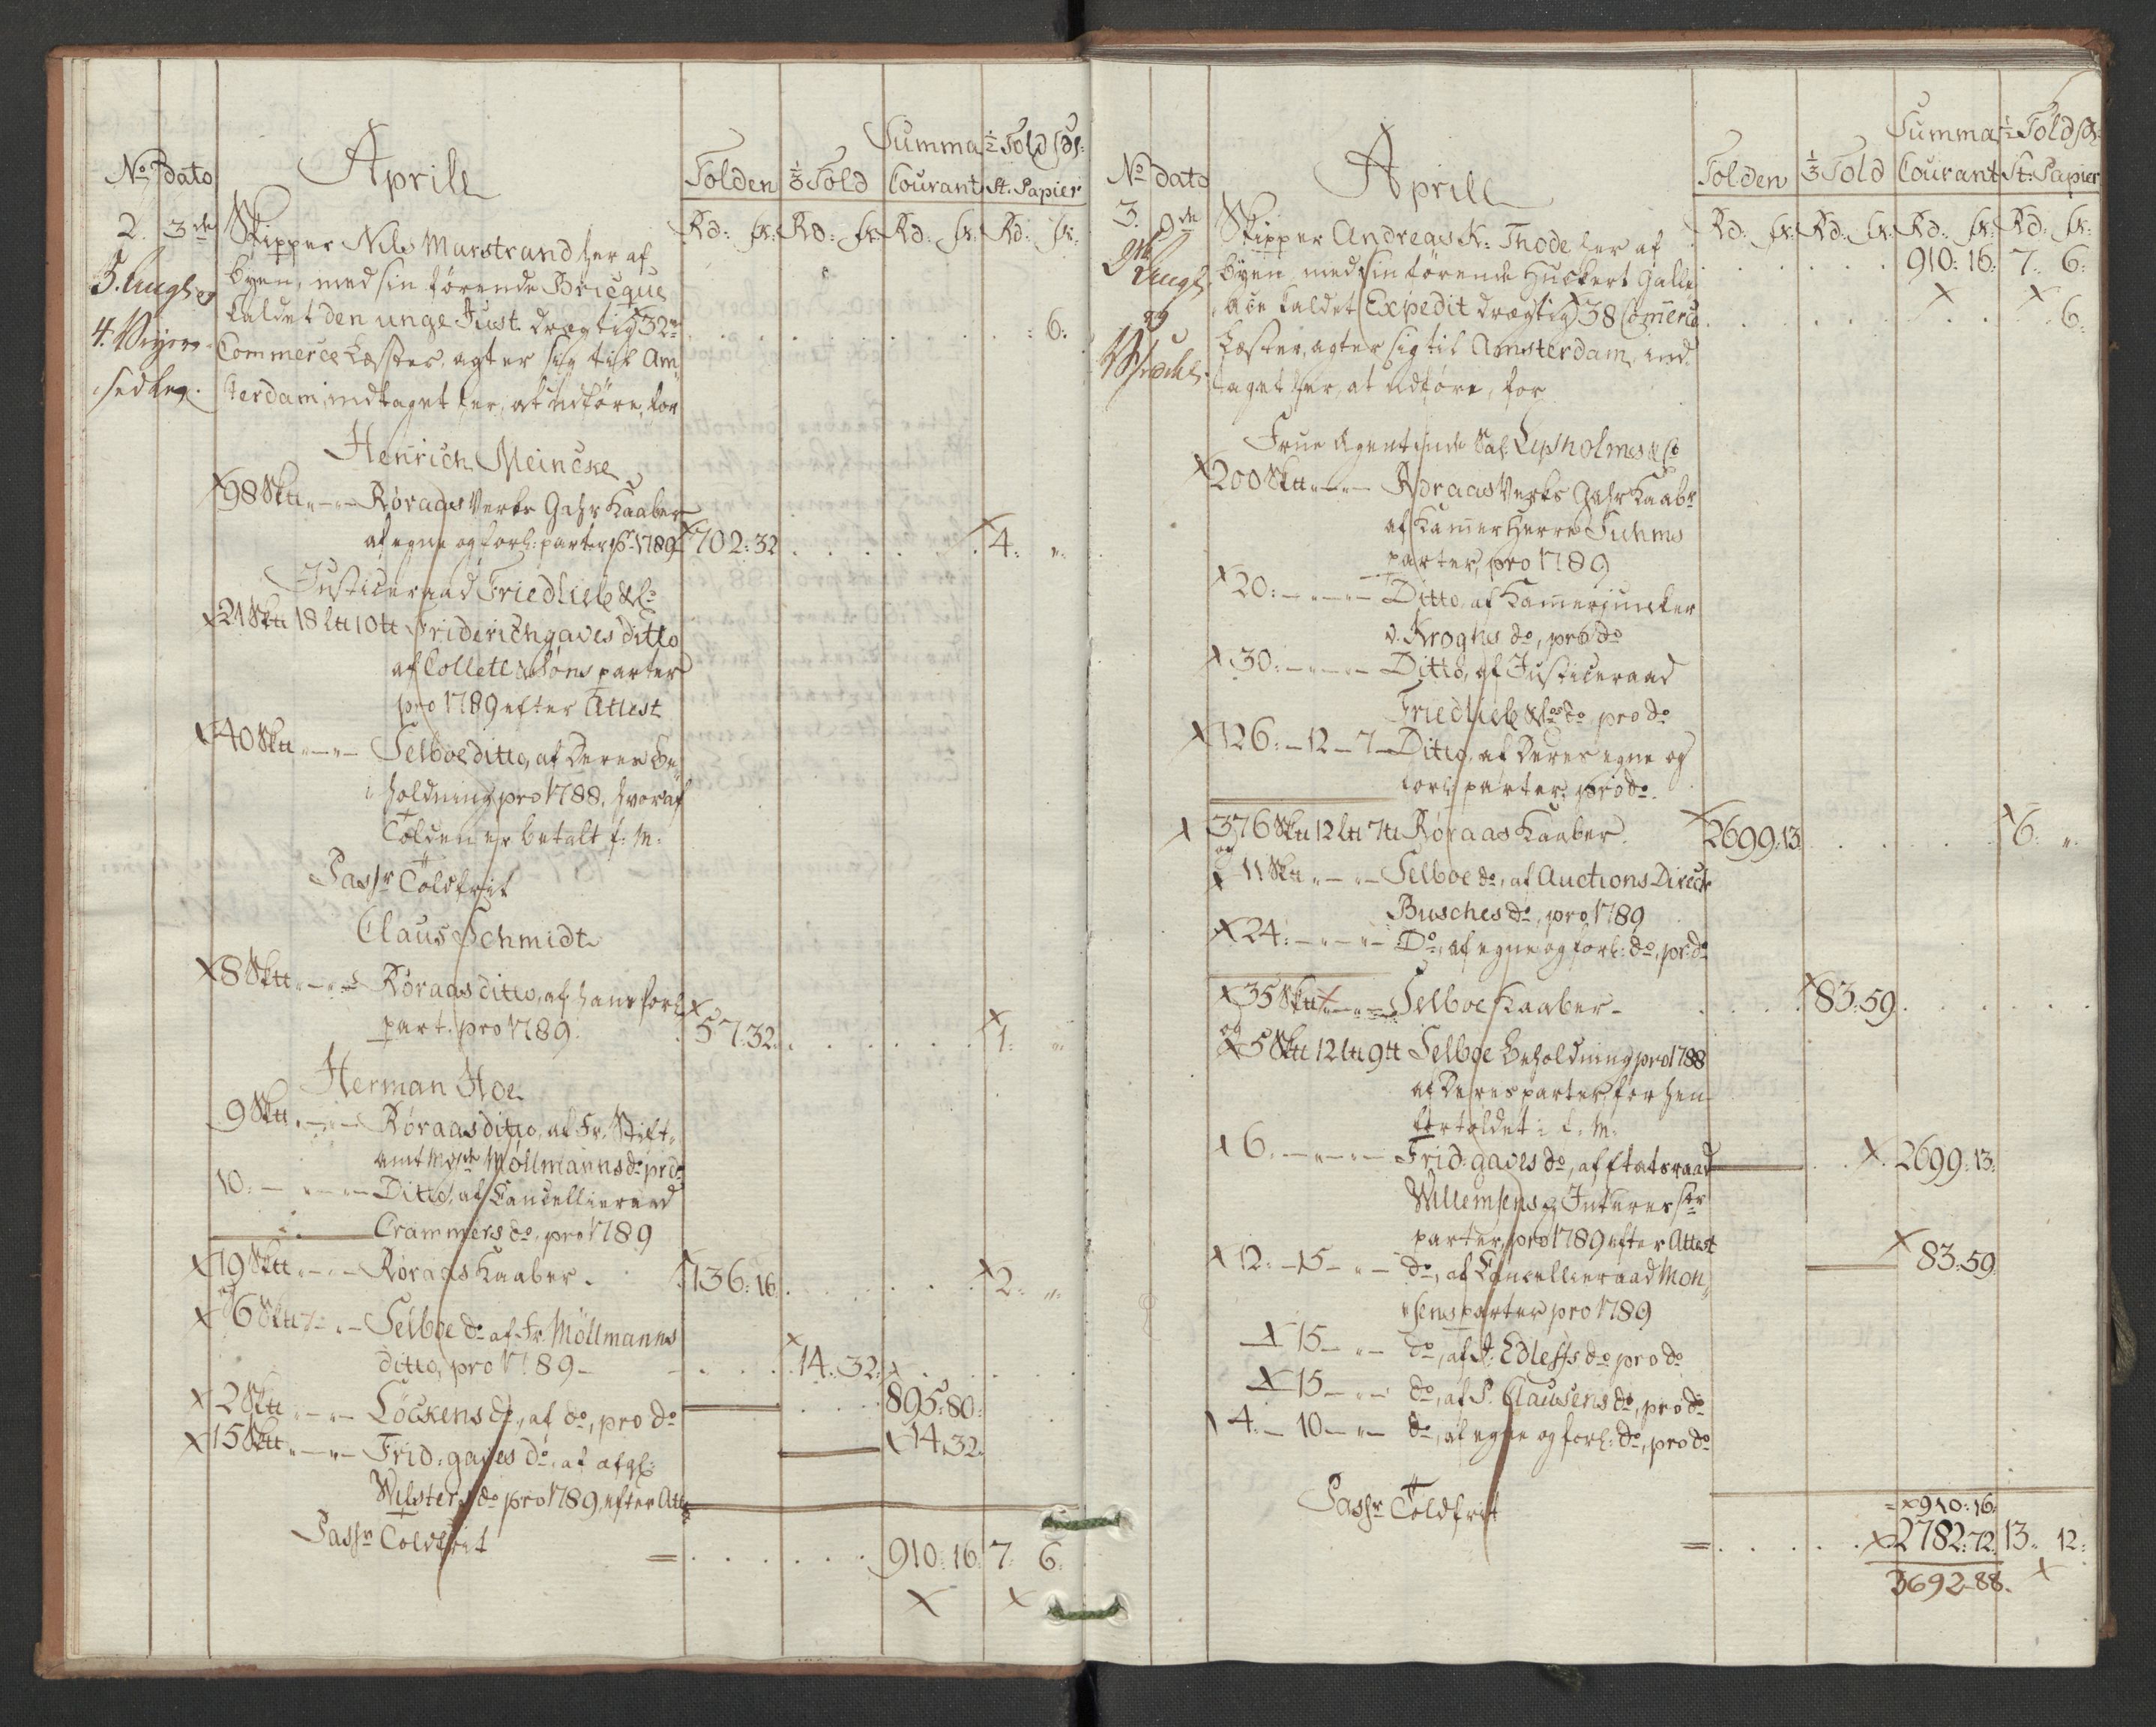 No dato
Aprill
Tolden
⅓ Told
Summa Courant
½ Told sds: St. Papier
Rd: sk: Rd: sk: Rd: sk: Rd: sk:
2. 3de Skipper Nils Marstrand her af
Byen, med sin förende Bricque
kaldet den unge Just. drægtig 32
Commerce Læster, agter sig til Am, 6:
sterdam, indtaget her, at udföre, for
Henrich Meincke
98 Sktt „ — „ — Röraas Verks Gahr Kaaber
af egne og forh: parter pro 1789 702: 32 4: „
Justiceraad Friedlieb & Co
21 Sktt 18 ltt 10 tt Friderichgaves ditto
af Collett & Söns parter
pro 1789 efter Attest
40 Sktt „ — „ — Selboe ditto, af Deres Be„
holdning pro 1788, hvoraf
Tolden er betalt f: M:
Passr Toldfrit
Claus Schmidt
8 Sktt „ — „ — Röraas ditto, af hans forh:
part. pro 1789. 57: 32 1: „
Herman Hoe
9 Sktt „ — „ — Röraas ditto, af Fr. Stift„
amtmde Möllmanns do pr do
10: — „ — „ — Ditto, af Cancellieraad
Crammers do, pro 1789
19 Sktt „ — „ — Röraas Kaaber. 136: 16 2: „
og
6 Sktt „ — „ — Selboe do af Fr. Möllmanns
ditto, pro 1789 — 14: 32:
2 Sktt „ — „ — Löckens do, af do, pro do 895: 80:
15 Sktt „ — „ — Frid: gaves do, af afgl: 14: 32:
Wilsters do pro 1789, efter Att:
Passr Toldfrit = 910: 16: 7: 6:
No dato
Aprill
Tolden
⅓ Told
Summa Courant
½ Told sds: St: Papier
Rd: sk: Rd: sk: Rd: sk: Rd: sk:
3. Skipper Andreas K: Thode her af
910: 16: 7: 6:
Byen med sin förende Huckert Galle
ace kaldet Expedit drægtig 38 Comerce 6:
Læster, agter sig til Amsterdam, ind
taget her, at udföre, for
Frue Agentinde Sal: Lysholmes & Co
200 Sktt „ — „ — Röraas Verks Gahr Kaabr
af Kamer Herre Suhms
parter, pro 1789
20: — „ — „ — Ditto, af Kamerjuncker
v. Kroghs do, pro do
30: — „ — „ — Ditto, af Justiceraad
Friedlieb & Cos do pro do
126: — 12 — 7 — Ditto, af Deres egne og
forh: parter, pro do.
376 Sktt 12 ltt 7 tt Röraas Kaaber. 2699: 13 6: „
og
11 Sktt „ — „ — Selboe do, af Auctions Direct:
Busches do, pro 1789
24: — „ — „ — Do, af egne og forh: do, pr: do
35 Sktt „ — „ — Selboe Kaaber — 83: 59
og
5 Sktt 12 ltt 9 tt Selboe beholdning pro 1788
af Deres parter, forhen
fortoldet i f: M:
6. — „ — „ — Frid: gaves do, af Etatsraad 2699: 13:
Willemsens og Interess:
parter, pro 1789 efter Attest
12: — 15 — „ — do, af Cancellieraad Mon„ 83: 59:
sens parter pro 1789
15 — „ — do, af J: Edlefs do pro do
15 — „ — do, af P. Clausens do, pro do
4: — 10 — „ — do, af egne og forh: do, pro do
Passr Toldfrit
910: 16:
= 2782: 72: 13: 12:
3692 — 88.